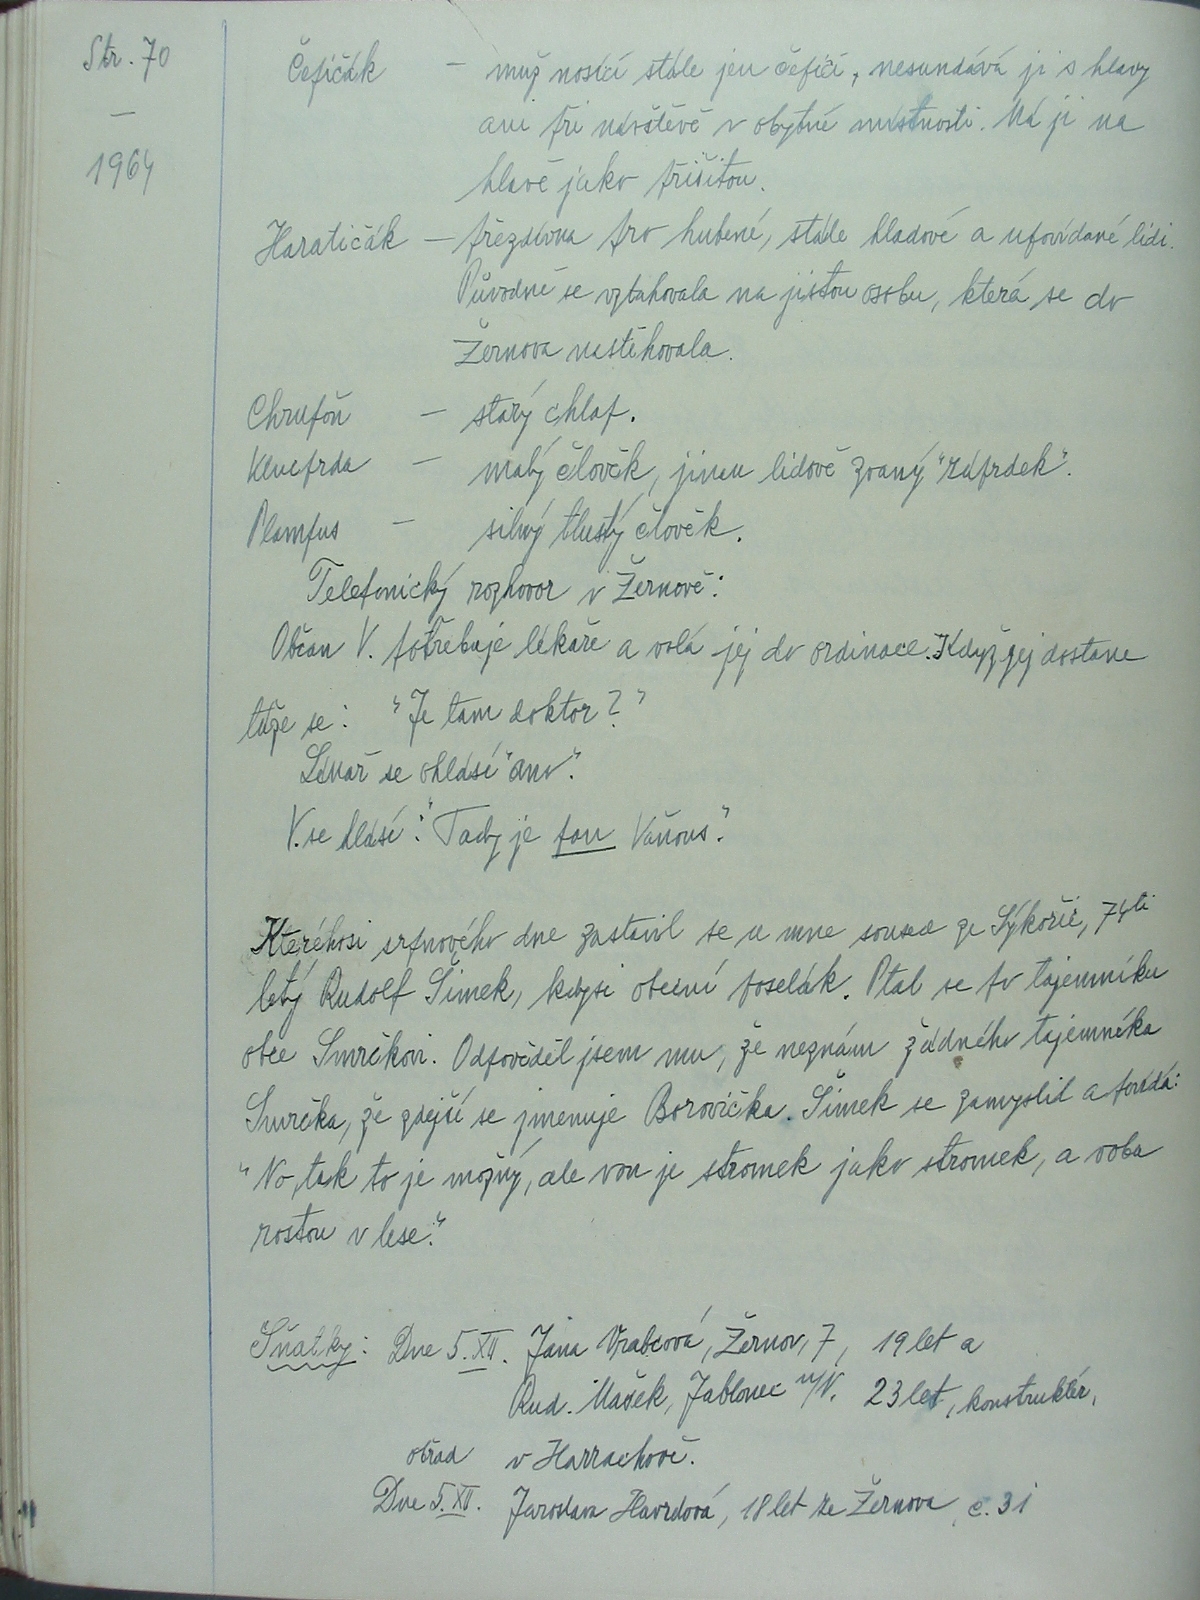 Str. 70
—
1964
Čepičák — muž nosící stále jen čepici, nesundává ji s hlavy
ani při návštěvě v obytné místnosti. Má ji na
hlavě jako přišitou.
Haratičák — přezdívka pro hubené, stále hladové a upovídané lidi.
Původně se vztahovala na jistou osobu, která se do
Žernova nastěhovala.
Chrupoň — starý chlap.
Klucprda — malý člověk, jinou lidově zvaný "záprdek".
Plampus — silný tlustý člověk.
Telefonický rozhovor v Žernově:
Občan V. potřebuje lékaře a volá jej do ordinace. Když jej dostane
táže se: "Je tam doktor?"
Lékař se ohlásí "ano".
V. se hlásí: "Tady je pan Vaňous".
Kteréhosi srpnového dne zastavil se u mne soused ze Sýkořic, 74ti
letý Rudolf Šimek, kdysi obecní poselák. Ptal se po tajemníku
obce Smrčkovi. Odpověděl jsem mu, že neznám žádného tajemníka
Smrčka, že zdejší se jmenuje Borovička. Šimek se zamyslil a povídá:
"No, tak to je možný, ale von je stromek jako stromek, a voba
rostou v lese."
Sňatky: Dne 5. XII. Jana Vrabcová, Žernov, 7, 19 let a
Rud. Mašek, Jablonec n/N. 23 let, konstruktér,
obřad v Harrachově.
Dne 5. XII. Jaroslava Havrdová, 18 let ze Žernova č. 31